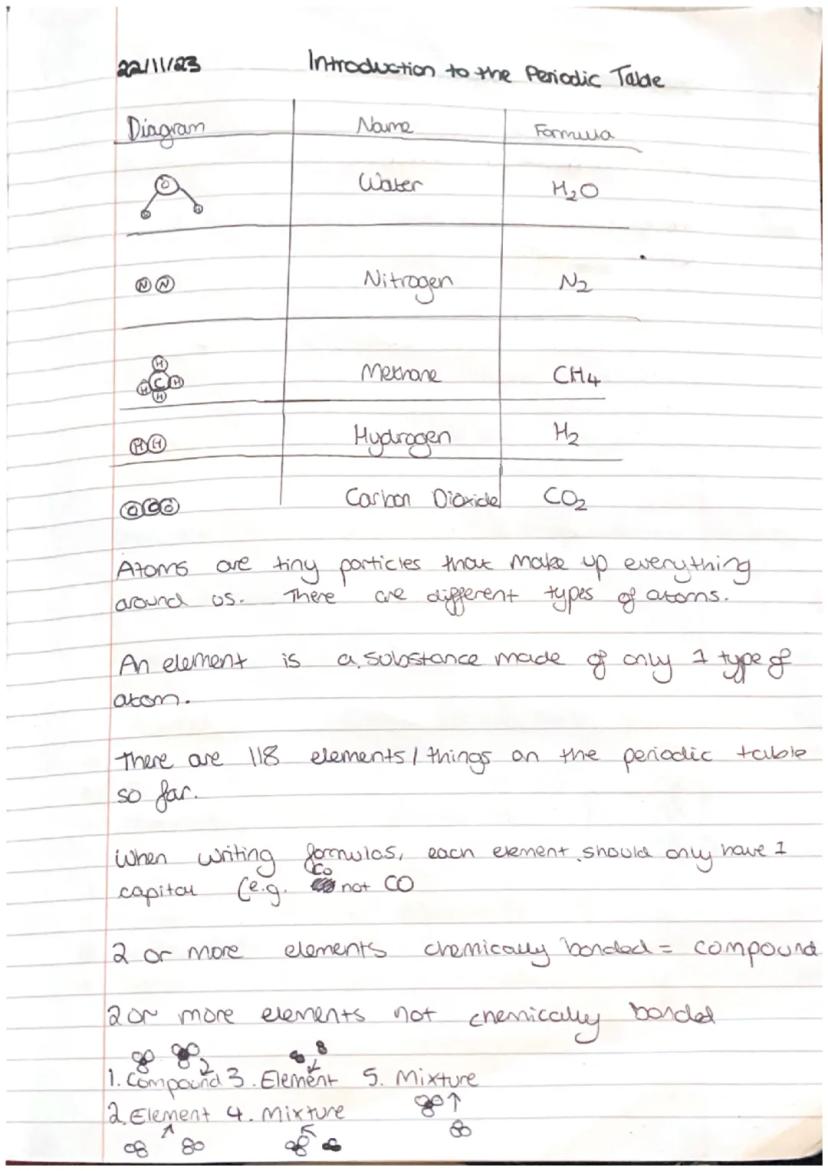 22/11/23 Introduction to the Periodic Table
Diagram Name Formula
O H H Water H₂O
N N Nitrogen N₂
H H C H H Methane CH4
H H Hydrogen H₂
O C O Carbon Dioxide CO₂
Atoms are tiny particles that make up everything
around us. There are different types of atoms.
An element is a substance made of only 1 type of
atom.
There are 118 elements/things on the periodic table
so far.
When writing formulas, each element should only have 1
capital (e.g. Co not CO
2 or more elements chemically bonded = compound
2 or more elements not chemically bonded
1. Compound 3. Element 5. Mixture
2. Element 4. Mixture